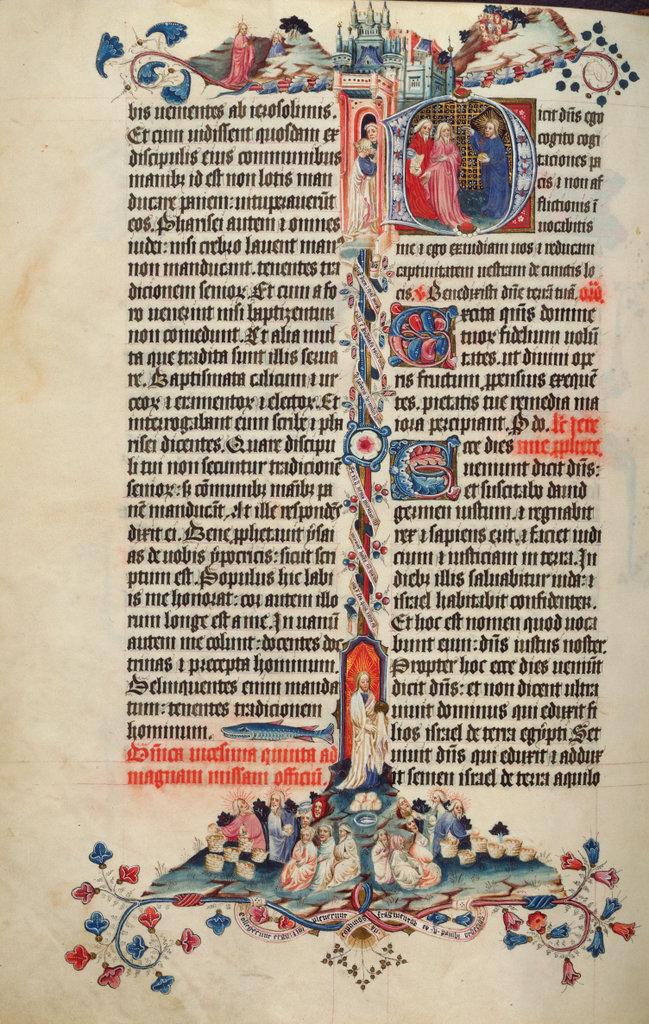 bis uenientes ab ierosolimis.
Et cum uidissent quosdam ex
discipulis eius communibus
manibꝫ id est non lotis man
ducare panem: uituperauerūt
eos. Pharisei autem ⁊ omnes
iudei: nisi crebro lauent man⁹
non manducant. tenentes tra
dicionem senioꝝ. Et cum a fo
ro uenerint nisi baptizentur
non comedunt. Et alia mul
ta que tradita sunt illis serua
re. Baptismata calicum ⁊ ur
ceoꝝ ⁊ eramentoꝝ ⁊ lectoꝝ. Et
interrogabant eum scribe ⁊ pha
risei dicentes. Quare discipu
li tui non secuntur tradicionē
senioꝝ: sꝫ cōmunibꝫ maībꝫ pa
nē manducāt. At ille respondēs
dixit ei. Bene prophetauit ysai
as de uobis ypocricis: sicut scri
ptum est. Populus hic labi
is me honorat: cor autem illo
rum longe est a me. In uanū
autem me colunt: docentes doc
trinas ⁊ precepta hominum.
Relinquentes enim manda
tum: tenentes tradicionem
hominum.
Dñica uicesima quinta ad
magnam missam officiū.
Dicit dñs ego
cogito cogi
taciones pa
cis ⁊ non af
flictionis ī
uocabitis
me ⁊ ego exaudiam uos ⁊ reducam
captiuitatem uestram de cunctis lo
cis. v̄ Benedixisti dñe terrā tuā. orō.
Excita quis domine
tuoꝝ fidelium uolū
tates. ut diuini ope
ris fructum, propensius exequē
tes. pietatis tue remedia ma
iora percipiant. P do. lc̄ iere
mie prophete.
Ecce dies
ueniunt dicit dñs:
et suscitabo dauid
germen iustum. ⁊ regnabit
rex ⁊ sapiens erit. ⁊ faciet iudi
cium ⁊ iusticiam in terra. In
diebꝫ illis saluabitur iuda: ⁊
israel habitabit confidenter.
Et hoc est nomen quod uoca
bunt eum: dñs iustus noster.
Propter hoc ecce dies ueniūt
dicit dñs: et non dicent ultra
uiuit dominus qui eduxit fi
lios israel de terra egypti. Set
uiuit dñs qui eduxit ⁊ addux
it semen israel de terra aquilo